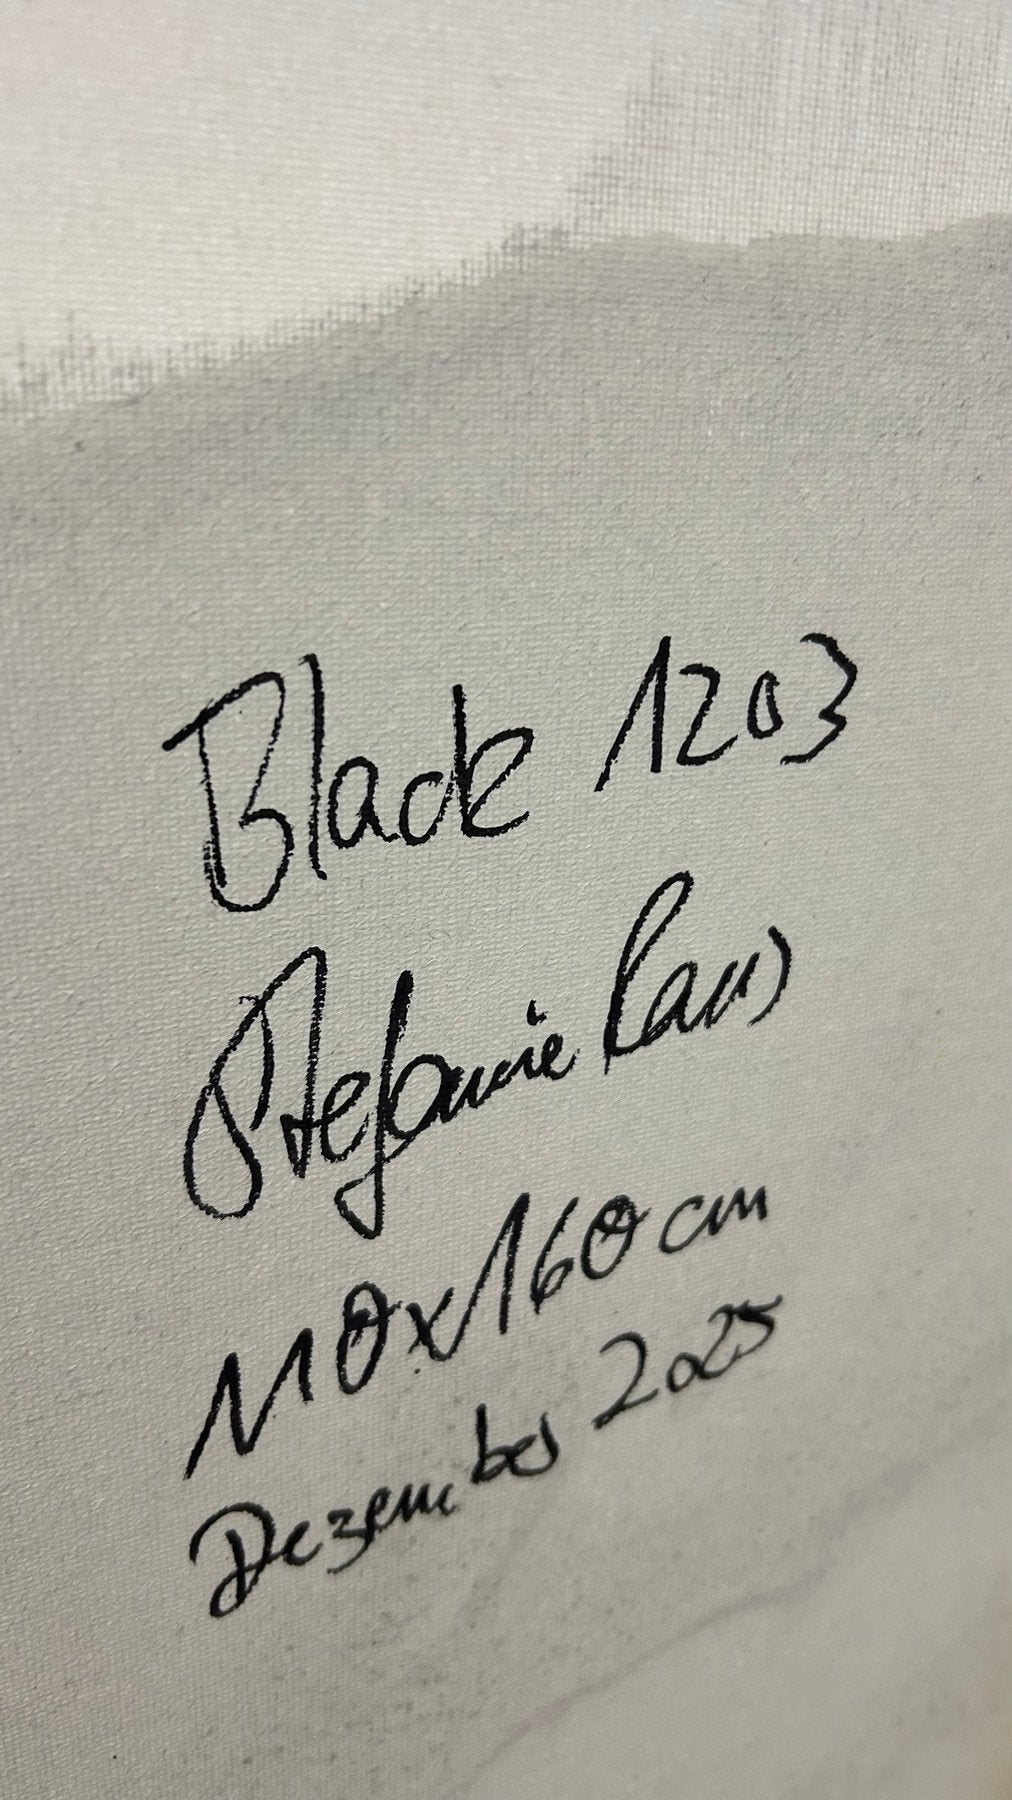 Black 1203
Stefanie
110x160 cm
Dezember 2025